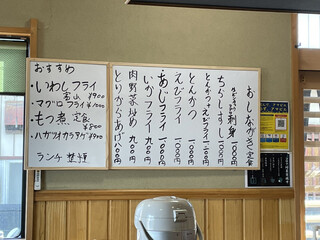 おすすめ
・いわしフライ
定食 ¥900
・マグロフライ ¥1000
・もつ煮定食
¥800
・ハガツオカラアゲ ¥900
ランチ
おしながき 定食
刺身 1000円
ちらしすし 1000円
とんかつ+エビフライ 1000円
とんかつ 1000円
えびフライ 1000円
あじフライ 1000円
いかフライ 900円
肉野菜炒め 900円
とりからあげ 800円